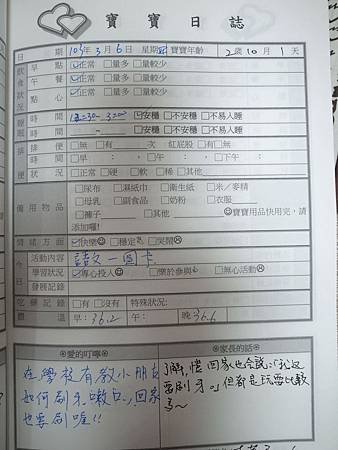 寶寶日誌
日期 103年3月6日 星期四 寶寶年齡 2歲10月1天
飲食狀況 早點 ☑正常 □量多 □量較少
午餐 ☑正常 □量多 □量較少
點心 ☑正常 □量多 □量較少
睡眠 時間 12=30- 3=00 ☑安穩 □不安穩 □不易入睡
時間 - □安穩 □不安穩 □不易入睡
排便狀況 排便 □無 □有 次 紅屁股 □有□無
時間 □早 : , □午 : , □下午 :
便狀 □正常 □硬 □軟 □稀 □其他
備用物品 □尿布 □濕紙巾 □衛生紙 □米/麥精
□母乳 □副食品 □奶粉 □衣服
□褲子 □其他 ☺寶寶用品快用完,請添加喔!
情緒方面 ☑快樂☺ □穩定 □哭鬧☹
今日 活動內容 語文-圖卡
學習狀況 ☑專心投入☺ □樂於參與 □無心活動☹
發展記錄
吃藥記錄 □有 □沒有 特殊狀況:
體溫 早:36.2 午: 晚:36.6
◎愛的叮嚀◎
在學校有教小朋友
如何刷牙.漱口,回家
也要刷喔!!
◎家長的話◎
了解,
回家也会說:
要刷牙。」但都是玩耍比較
多～